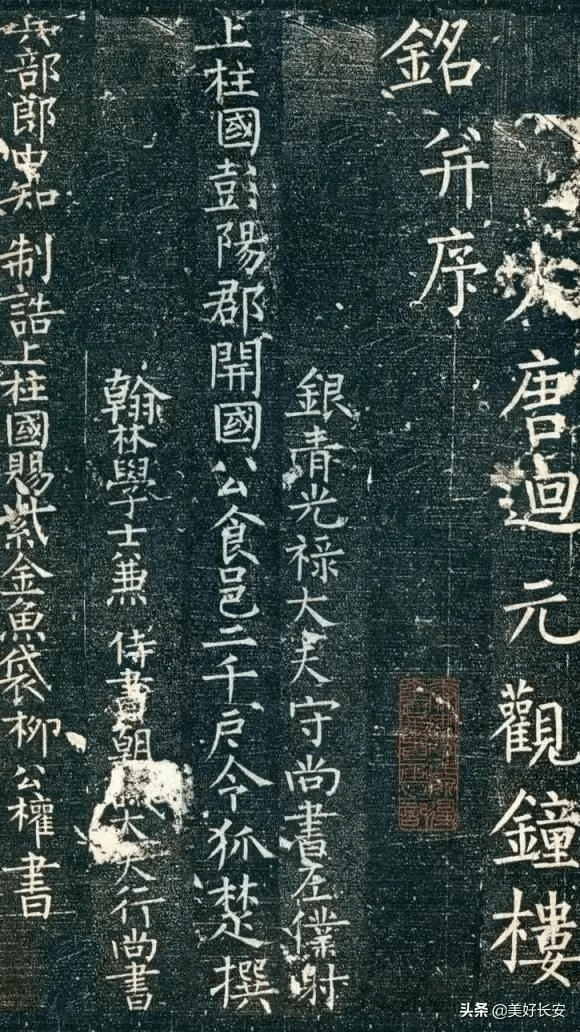 大唐迴元觀鐘樓
銘并序
銀青光禄大夫守尚書左僕射
上柱國彭陽郡開國公食邑二千戶令狐楚撰
翰林學士兼侍書朝議大夫行尚書
兵部郎中知制誥上柱國賜紫金魚袋柳公權書
头条 @美好长安